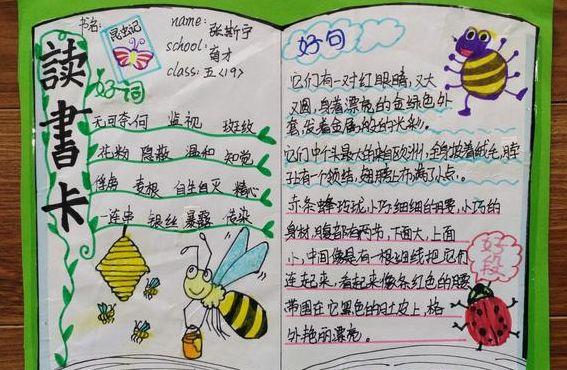 讀書卡
书名:
昆虫记
name: 张斯宇
school: 育才
class: 五<19>
好词
无可奈何 监视 斑纹
花粉 隐蔽 温和 知觉
麦根 自生自灭 精心
一连串 银丝 暴躁 传染
好句
它们有一对红眼睛,又大
又圆,身着漂亮的金绿色外
套,发着金属般的光彩。
它们中个头最大的来自欧洲,全身披着绒毛,脖
子有一个领结,翅膀上布满了小点。
好段
赤条蜂玲珑,小巧细细的腰,小巧的
身材,腹部有两节,下面大,上面
小,中间像是有一根细线把它们
连起来,看起来像条红色的腰
带围在它黑色的肚皮上,格
外艳丽漂亮。